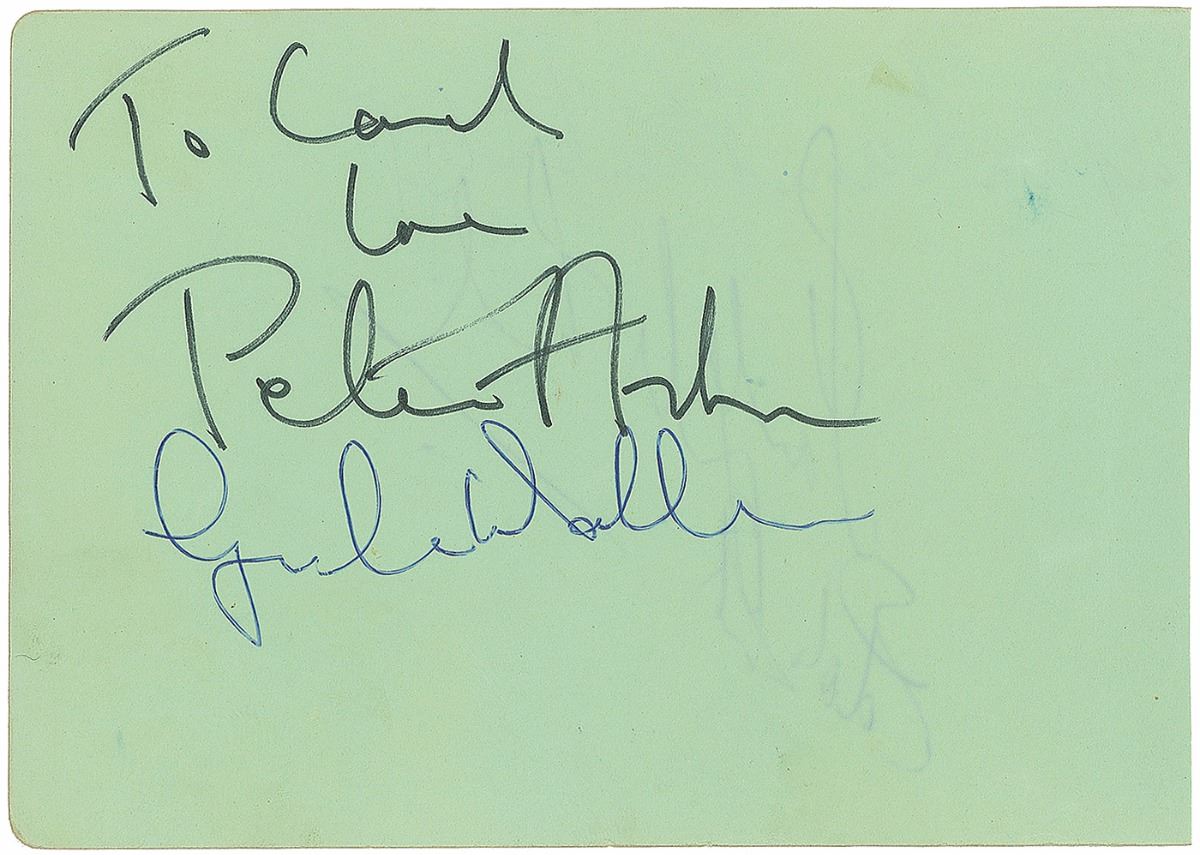 To Carol
Love
Peter Asher
Gordon Waller